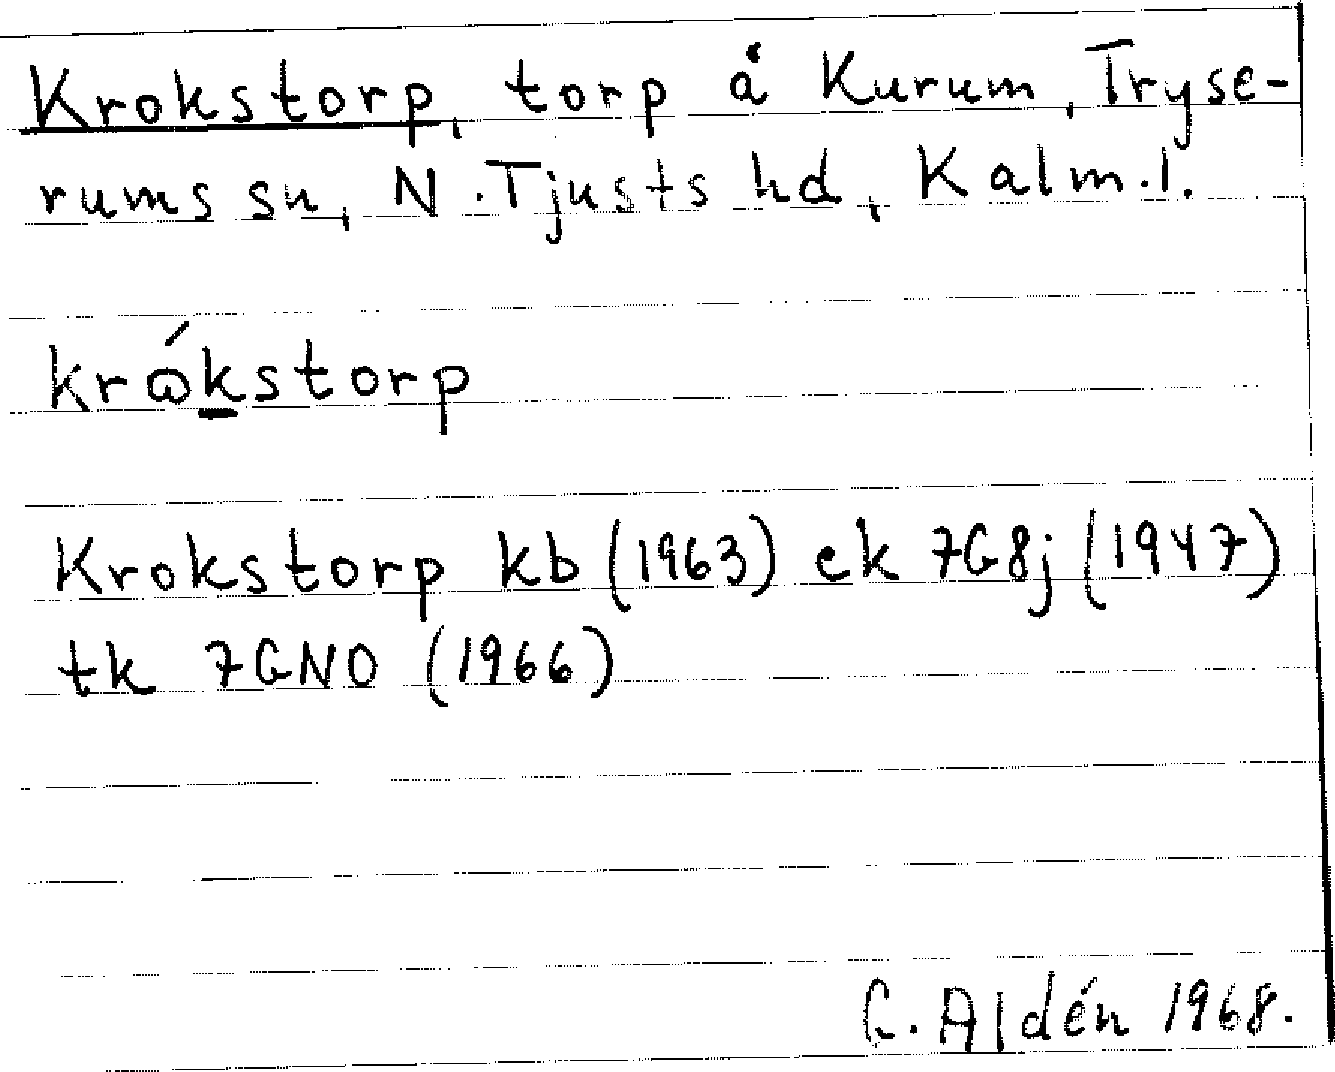 Krokstorp, torp å Kurum, Tryse-
rums sn, N. Tjusts hd, Kalm.l.
krⱺ́kstorp
Krokstorp kb (1963) ek 7G8j (1947)
tk 7GNO (1966)
C. Aldén 1968.